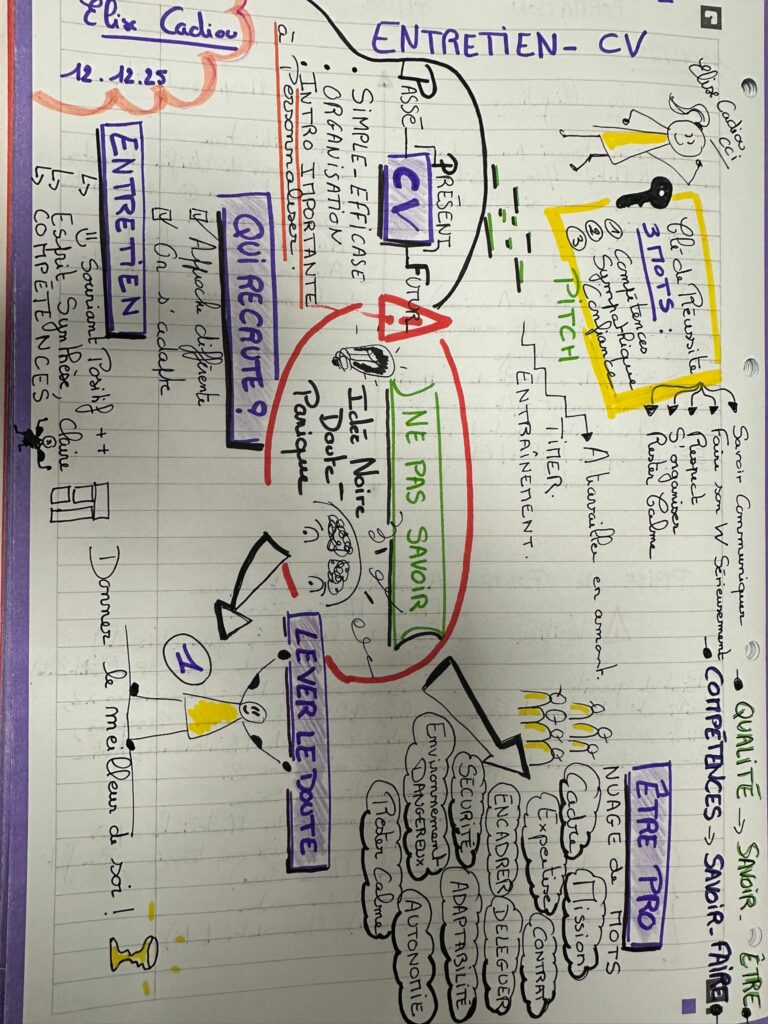 Elix Cadiou
12.12.25
ENTRETIEN - CV
Elix Cadiou
CCI
PASSÉ
PRÉSENT
FUTUR
CV
• SIMPLE - EFFICASE
• ORGANISATION
• INTRO IMPORTANTE
à Personnaliser.
Clé de Réussite
3 MOTS :
① Compétences
② Sympathique
③ Confiante
Savoir Communiquer
Faire son W Sérieusement
Respect
S'organiser
Rester Calme
• QUALITÉ → SAVOIR - ÊTRE
• COMPÉTENCES → SAVOIR - FAIRE
PITCH
A travailler en amont.
TIMER.
ENTRAÎNEMENT.
QUI RECRUTE ?
☑ Approche différente
☑ On s'adapte
ENTRETIEN
↳ Souriant Positif ++
↳ Esprit Synthèse, Claire
↳ COMPÉTENCES
NE PAS SAVOIR
Idée Noire
Doute -
Panique
LEVER LE DOUTE
1
Donner le meilleur de soi !
ÊTRE PRO
NUAGE de MOTS
Cadre
Mission
Expertise
CONTRAT
ENCADRER
DELEGUER
SECURITÉ
ADAPTABILITÉ
Environnement
DANGEREUX
AUTONOMIE
Rester Calme